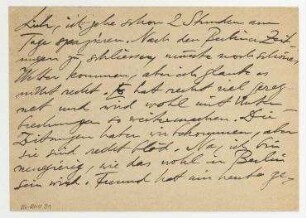 Lieb, ich gehe schon 2 Stunden am
Tage spazieren. Nach den Berliner Zeit
ungen zu schliessen, müsste noch schönes
Wetter kommen, aber ich glaube es
nicht recht. Es hat recht viel gereg
net und wird wohl mit Unter
brechungen so weitermachen. Die
Zeitungen haben wir bekommen, aber
sie sind recht blöd. Na, ich bin
neugierig, wie das wohl in Berlin
sein wird. Freund hat mir heute ge-